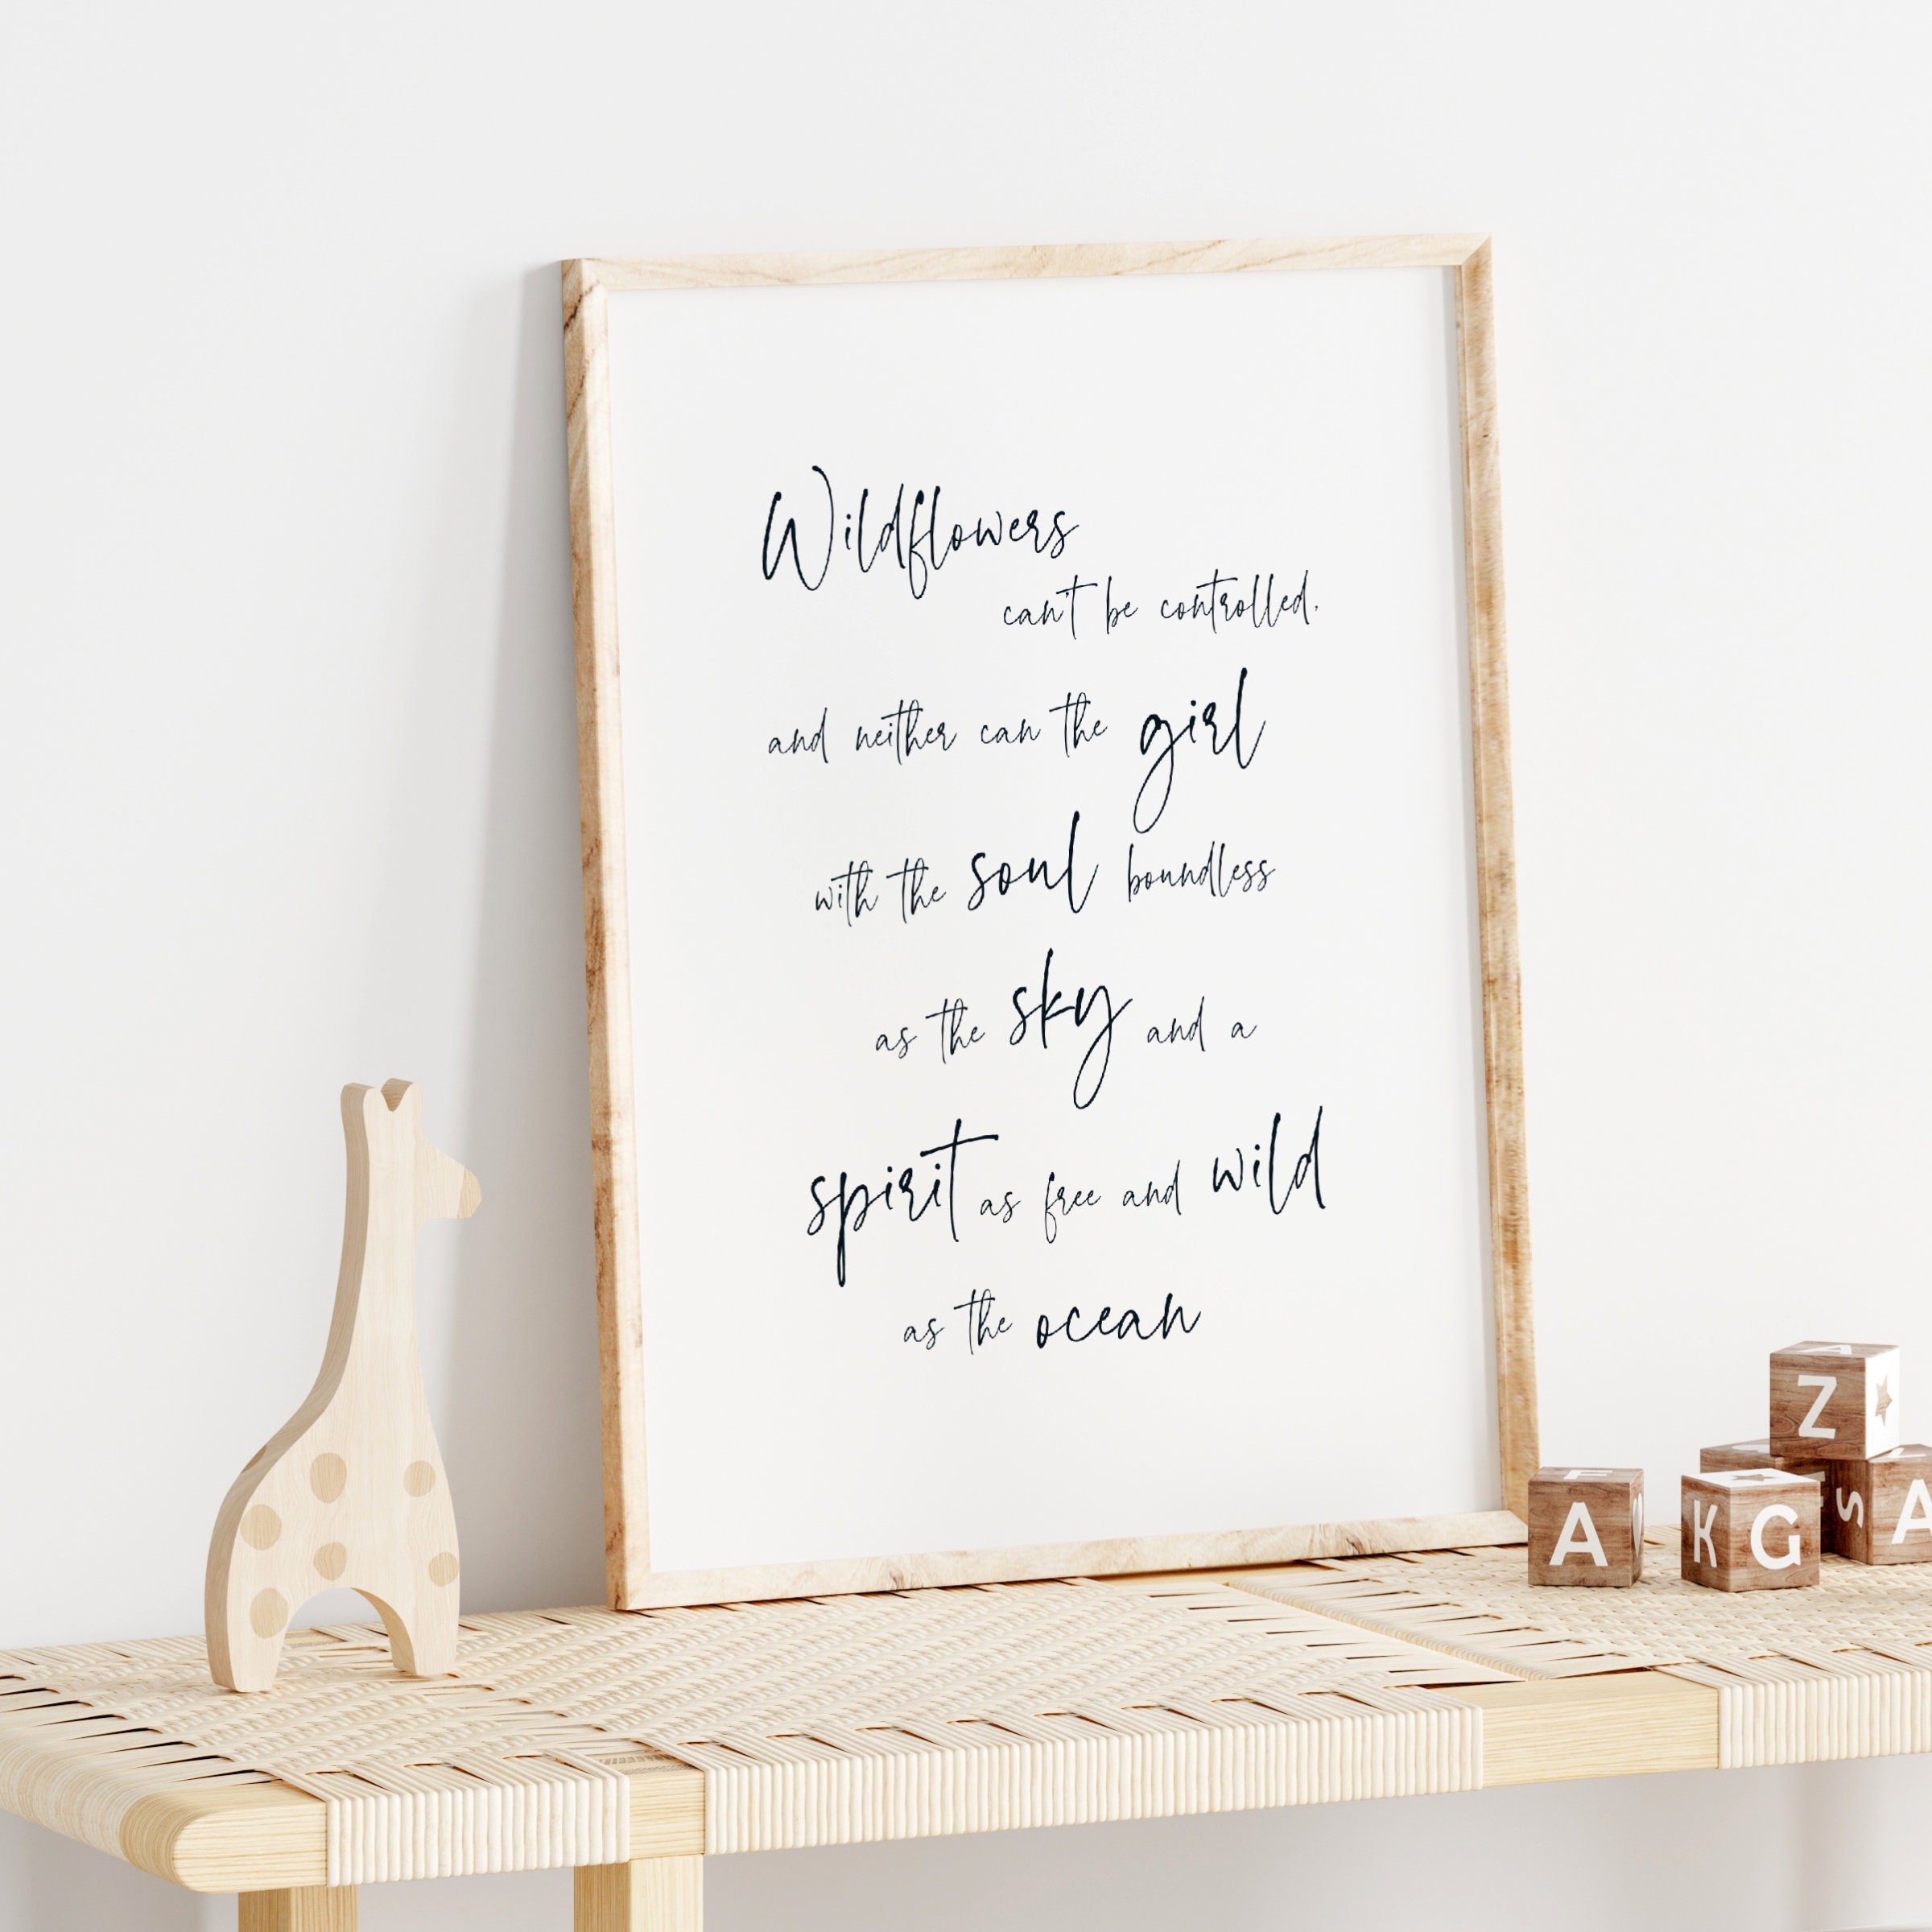 Wildflowers
can't be controlled,
and neither can the girl
with the soul boundless
as the sky and a
spirit as free and wild
as the ocean
Z
A
K G
S A